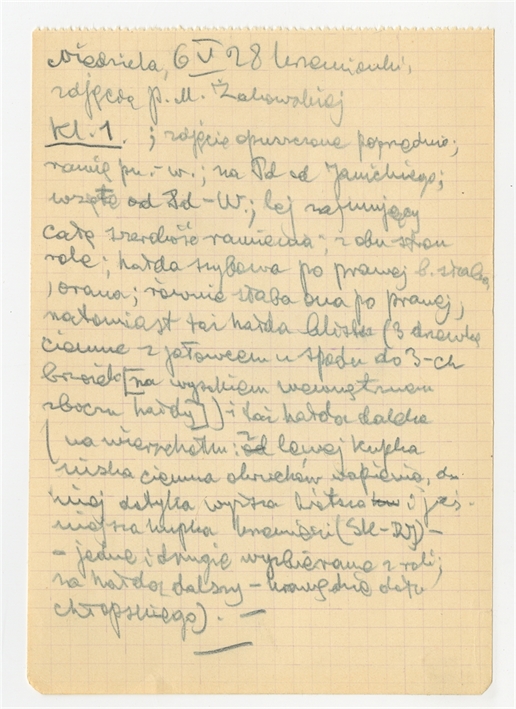 Niedziela, 6 V 28 Krzemionki,
zdjęcia p. M. Żukowskiej
Kl. 1. ; zdjęcie opuszczone poprzednio;
ramię pn.-w.; na Pd od Janickiego;
wzięte od Pd-W.; lej zajmujący
całą szerokość ramienia; z obu stron
role; hałda szybowa po prawej b. słaba,
orana; równie słaba ona po prawej,
natomiast tai hałda bliska (3 drzewka
ciemne z jałowcem u spodu do 3-ch
brzózek [na wysokiem wewnętrznem
zboczu hałdy]) i taż hałda daleka
(na wierzchołku: od lewej kupka
niska ciemna okruchów wapienia, do
niej dotyka wyższa bielsza i jaś-
niejsza kupka krzemieni (Sk-Dj) -
- jedne i drugie wyzbierane z roli;
za hałdą dalszy - krawędzie dołu
chłopskiego). -